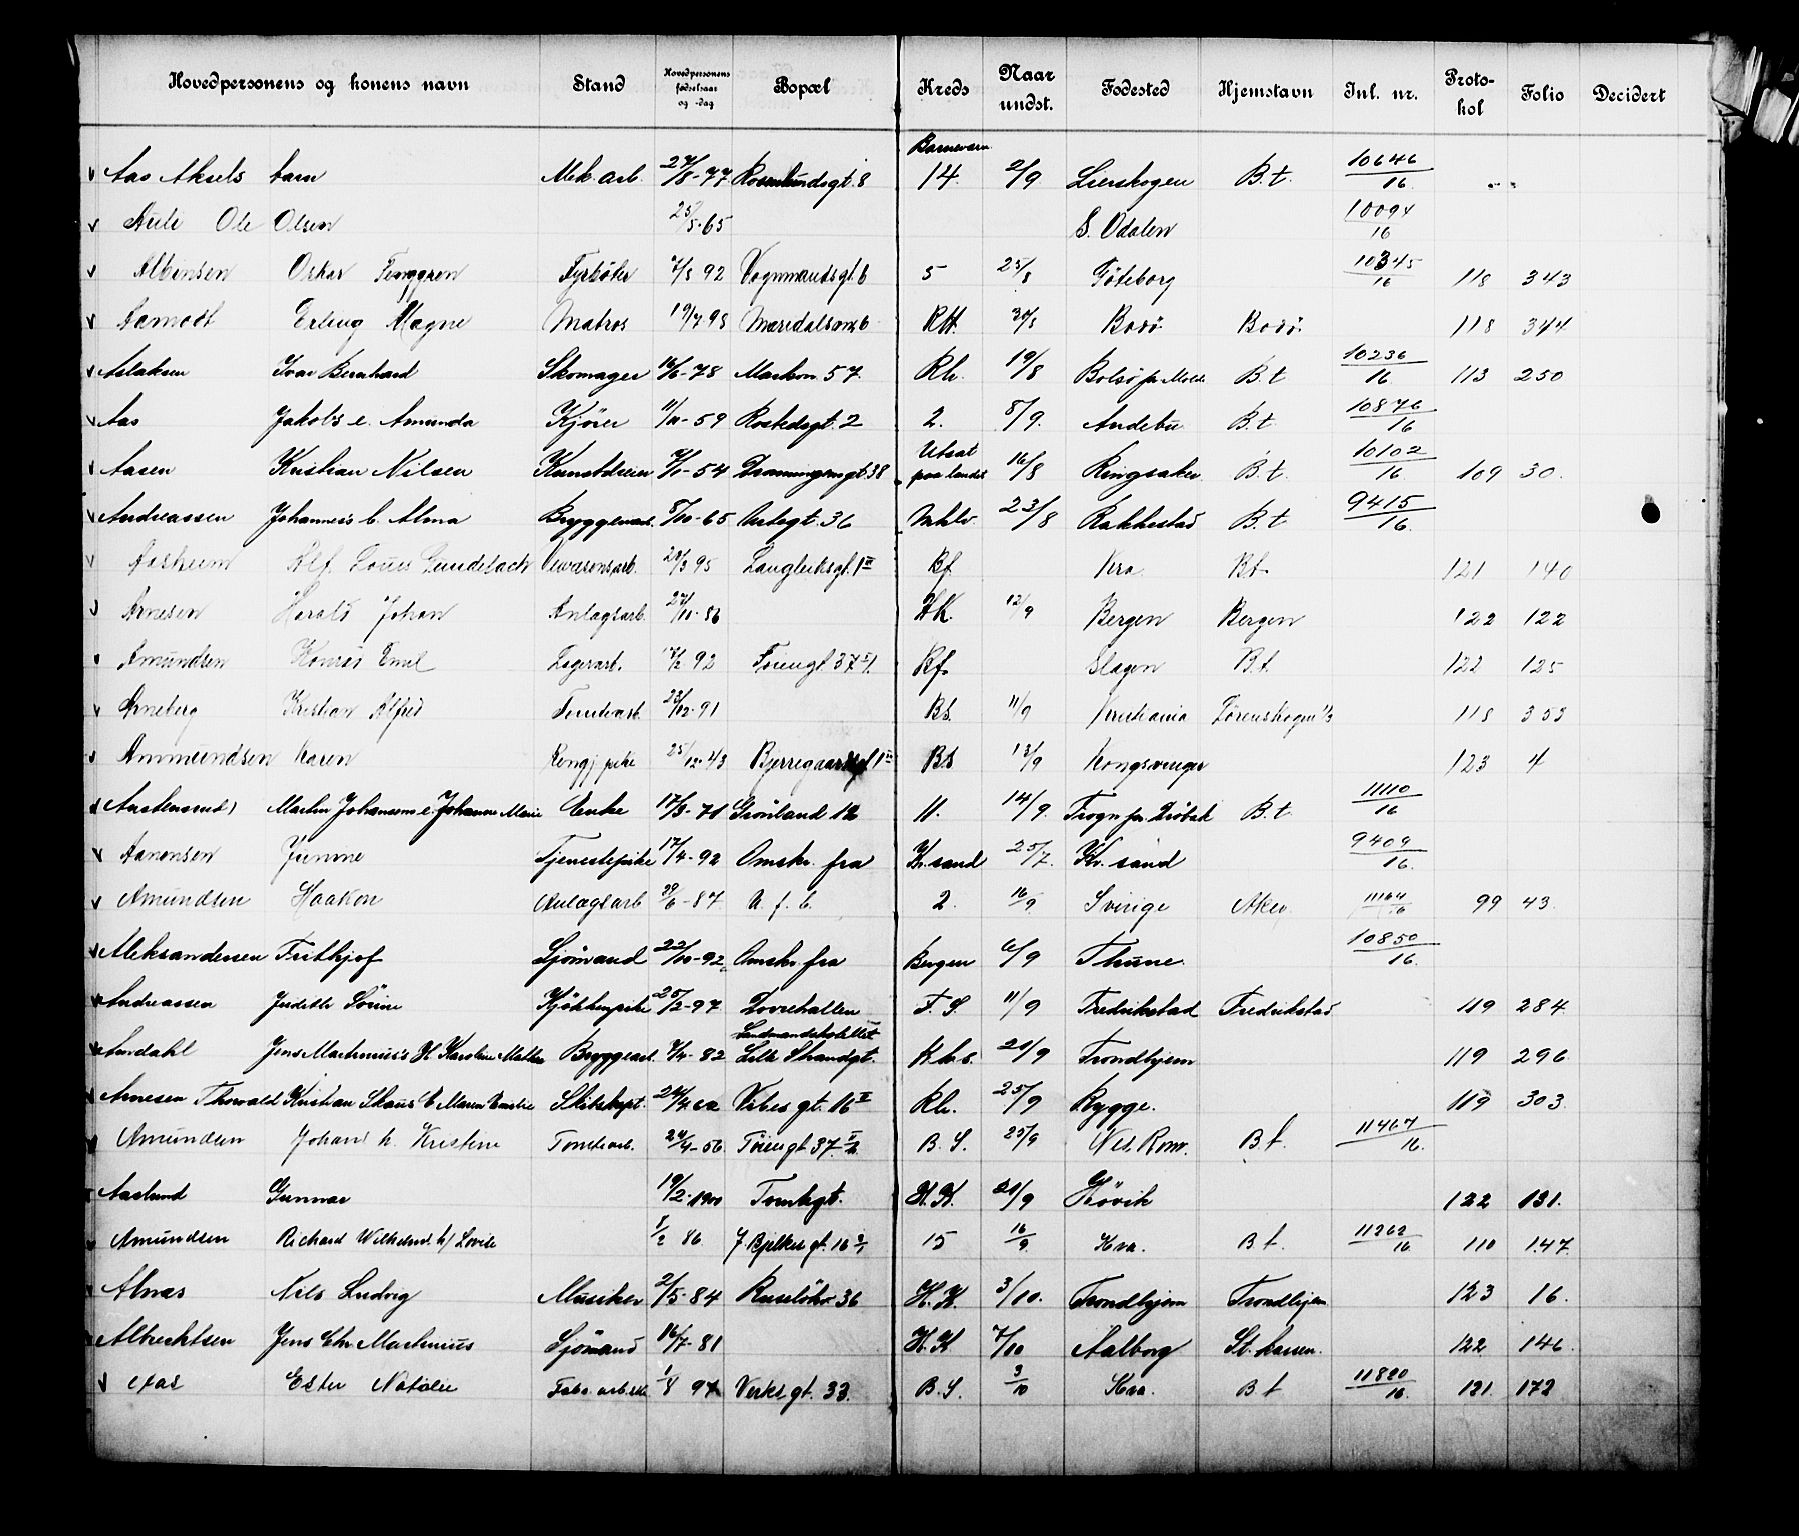 Hovedpersonens og konens navn Stand Hovedpersonens fødselsaar og -dag Bopæl Kreds Naar undst. Fødested Hjemstavn Inl. nr. Protokol Folio Decidert
Aas Aksels barn Mek. arb. 27/8-77 Rosenlundsgt. 8 Barnevern 14. 2/9. Lierskogen B.t. 10646/16
Ole Olsen 25/5-65 S. Odalen 10094/16
Albinsen Oskar Tenggren Fyrbøter 7/8 92 Vognmandsgt. 6 5 25/8 Göteborg 10345/16 118 343
Aamodt Erling Magne Matros 19/7 98 Maridalsvn. 6 RH. 30/8 Bodø Bodø. 118 344
Aslaksen Ivar Bernhard Skomager 16/6-78 Markvn. 57. Rh. 19/8 Bolsö pr. Molde B.t 10236/16 113 250
Aas Jakobs e. Amunda Kjører 11/11-59 Rostedsgt. 2 2. 8/9. Andebu B.t. 10876/16
Aasen Kristian Nilsen Kunstdreier -54 Dronningensgt. 38 Utsat paa landet 16/8 Ringsaker B.t 10102/16 109 30.
Andreassen Johannes's b. Alma Bryggearb. 5/10-65 Urtegt. 36 23/8 Rakkestad B.t 9415/16.
Aasheim Alf Louis Gundelach 28/3 95 Langleiksgt. 1 II Bf. Kra. B.t. 121 140
Arnesen Harald Johan Anlagsarb. 27/11-86 H.K. 12/9 Bergen Bergen 122 122
Amundsen Konrad Emil Lagerarb. 17/2 92 Tøiengt. 37 Bf. Slagen B.t. 122 125
Arneberg Kristian Alfred Tomtearb. 23/12-91 B.S. 11/9 Kristiania Lørenskogen 118 353
Ammundsen Karen Rengj. pike 25/12-43 B.S 13/9 Kongsvinger 123 4
Austensrud Martin Johansens e. Johanne Marie Enke 17/3-71 Grönland 12 11. 14/9. Frogn pr. Dröbak B.t. 11110/16
Aanensen Tjenestepike 17/4-92 Omskr. fra Kr. sand 25/7. Kr. sand 9409/16.
Amundsen Haakon Anlægsarb -87. u. f. b. 2. 16/9. Sverige Aker. 11164/16 99 43.
Aleksandersen Frithjof Sjömand 22/10-92. Omskr. fra Bergen 6/9 Thune. 10850/16.
Andreassen Judith Sörine Kjökkenpike 25/2-97. Dovrehallen F.S. 11/9 Fredrikstad Fredrikstad 119 284
Amdahl Jens Martinius's H. Karoline Bryggearb. 7/4-82 Landmandshotellet Lille Strandgt. K.h.s. 21/9 Trondhjem 119 296.
Arnesen Thorvald Kristian E Maren Emilie 24/4 62 Vibes gt. 16 II Rh. 25/9 Rygge. 119 303.
Amundsen Johan h. Kristine Tomtearb. 24/4-56. Tøiengt. 37. B.S. 25/9 Nes, Rom. B.t. 11467/16.
Aaslund Gunnar 19/2-1900 Tomtegt. H.K. 21/9 Hövik 122 131.
Amundsen Richard Wilhelms h/ Lovise 1/2 86 J. Bjelkes gt. 16 15 16/9. Kra. B.t. 11262/16. 110 147.
Alnæs Nils Ludvig Musiker 2/5-84 Ruselökv. 36 H.K. 3/10. Trondhjem Trondhjem 123 16.
Albrechtsen Jens Chr. Martinius Sjömand 16/7-81 H.K 7/10 Aalborg St. kassen. 122 146.
Aas Ester Natalie 1/8 97 Verksgt. 33. B.S. 3/10 Kra. B.t 11820/16. 121. 172